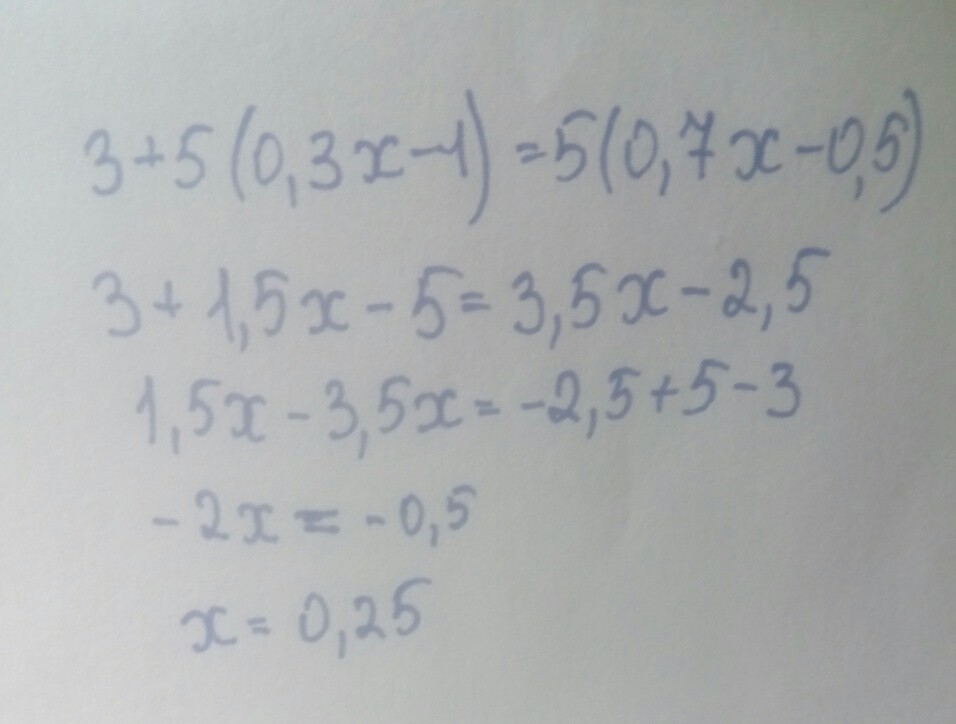 3+5(0,3x-1)=5(0,7x-0,5)
3+1,5x-5=3,5x-2,5
1,5x-3,5x=-2,5+5-3
-2x=-0,5
x=0,25